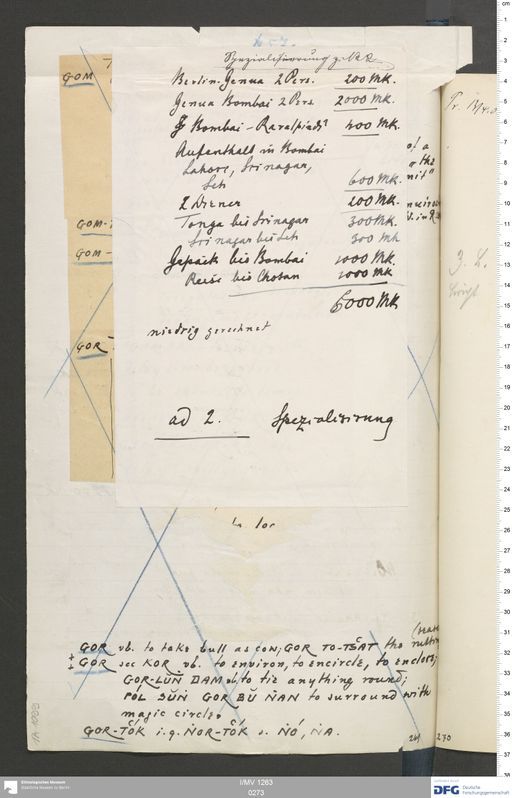 Spezialisierung z.
Berlin-Genua 2 Pers. 200 Mk.
Genua Bombai 2 Pers. 2000 Mk.
Bombai - Ravalpindi 400 Mk.
Aufenthalt in Bombai
Lahore, Srinagar,
Leh 600 Mk.
2 Diener 200 Mk.
Tonga bis Srinagar 300 Mk.
Srinagar bis Leh 300 Mk
Gepäck bis Bombai 1000 Mk.
Reise bis Chotan 1000 Mk.
6000 Mk
niedrig gerechnet
ad 2. Spezialisirung
GOM
GOM-
GOM-
GOR
of a
the
GOR vb. to take bull as cow; GOR TO-TŠAT the
GOR see KOR, vb. to environ, to encircle, to enclose;
GOR-LUṄ DAM vb to tie anything round;
GOR BŬ ṄAN to surround with
magic circles
GOR-TŎK i.q. ṄOR-TŎK s. ṄÓ, ṄA.
269 270
I/MV 1263
0273
Ethnologisches Museum
Staatliche Museen zu Berlin
DFG Deutsche
Forschungsgemeinschaft